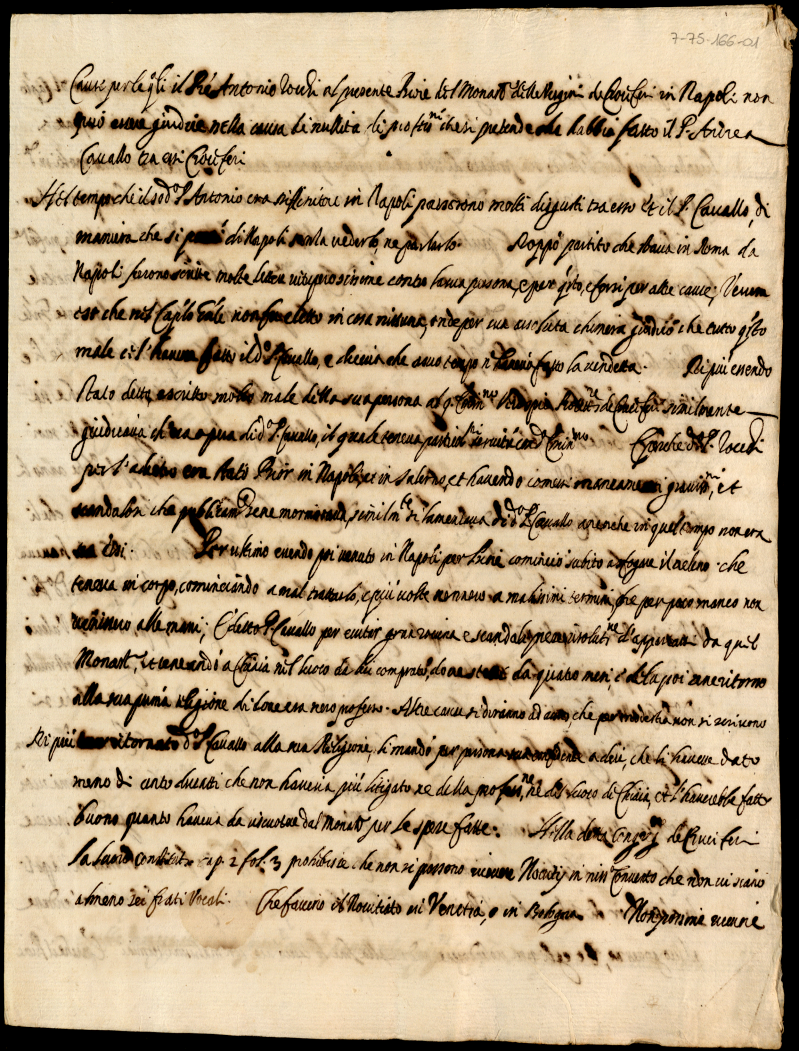 7-75-166-01
Cause per le qli il Pre Antonio Tocdi al presente Priore del Monastro delle Vergini de Crociferi in Napoli non
può essere giudice nella causa di nullità di profne che si pretende che habbia fatto il P. Andrea
Cavallo tra essi Crociferi
Nel tempo che il sodo P. Antonio era diffinitore in Napoli passorono molti disgusti tra esso et il P. Cavallo, di
maniera che si partì di Napoli senza vederlo, ne parlarlo. Doppo partito che stava in Roma da
Napoli furono scritte molte lettere vituperosissime contro la sua persona, e per qsto, e forsi per altre cause, venne
che nel Caplo Gnle non fu eletto in cosa nissuna, onde per sua assoluta chimera giudicò che tutto qsto
male ce l'haveva fatto il do P. Cavallo, e diceva che a suo tempo n'haveria fatto la vendetta. Di più essendo
stato detto, e scritto molto male della sua persona al Protettre de Cruciferi similmente
giudicava ch'era opera di do P. Cavallo, il quale teneva servitù con do
per l'adietro era stato Prior in Napoli, et in Salerno, et havendo comessi mancamenti gravissmi, et
scandalosi che publicamte sene mormorava, similmte si lamentava di do P. Cavallo ancorche in quel tempo non era
tra essi. Per ultimo essendo poi venuto in Napoli per Priore cominciò subito a sfogare il veleno che
teneva in corpo, cominciando a mal trattarlo, e più volte vennero a malissimi termini, che per poco manco non
vennero alle mani; E detto P. Cavallo per evitar gran ruina e scandalo da quel
Monastro, et sene andò a Chiaia nel luoco da lui comprato, dove stette da quatro mesi, e dopoi sene ritorno
alla sua prima religione di dove era vero professo. Altre cause si diranno ad aures, che per modestia non si scriveno
Di più ritornato do P. Cavallo alla sua Religione, li mandò per persona confidente a dire, che li havesse dato
meno di cento ducati che non haveria più litigato ne della professne, ne del luoco di Chiaia, et l'haverebbe fatto
buono quanto haveva da riscuotere dal Monastro per le spese fatte. Nella detta Congregne de Cruciferi
la loro Constitutne cap. 2 fol. 3 prohibisce che non si possono ricevere Novitij in nissn Convento che non vi siano
almeno sei frati Vocali. Che faccino il Novitiato in Venetia, o in Bologna. Non possono ricevere